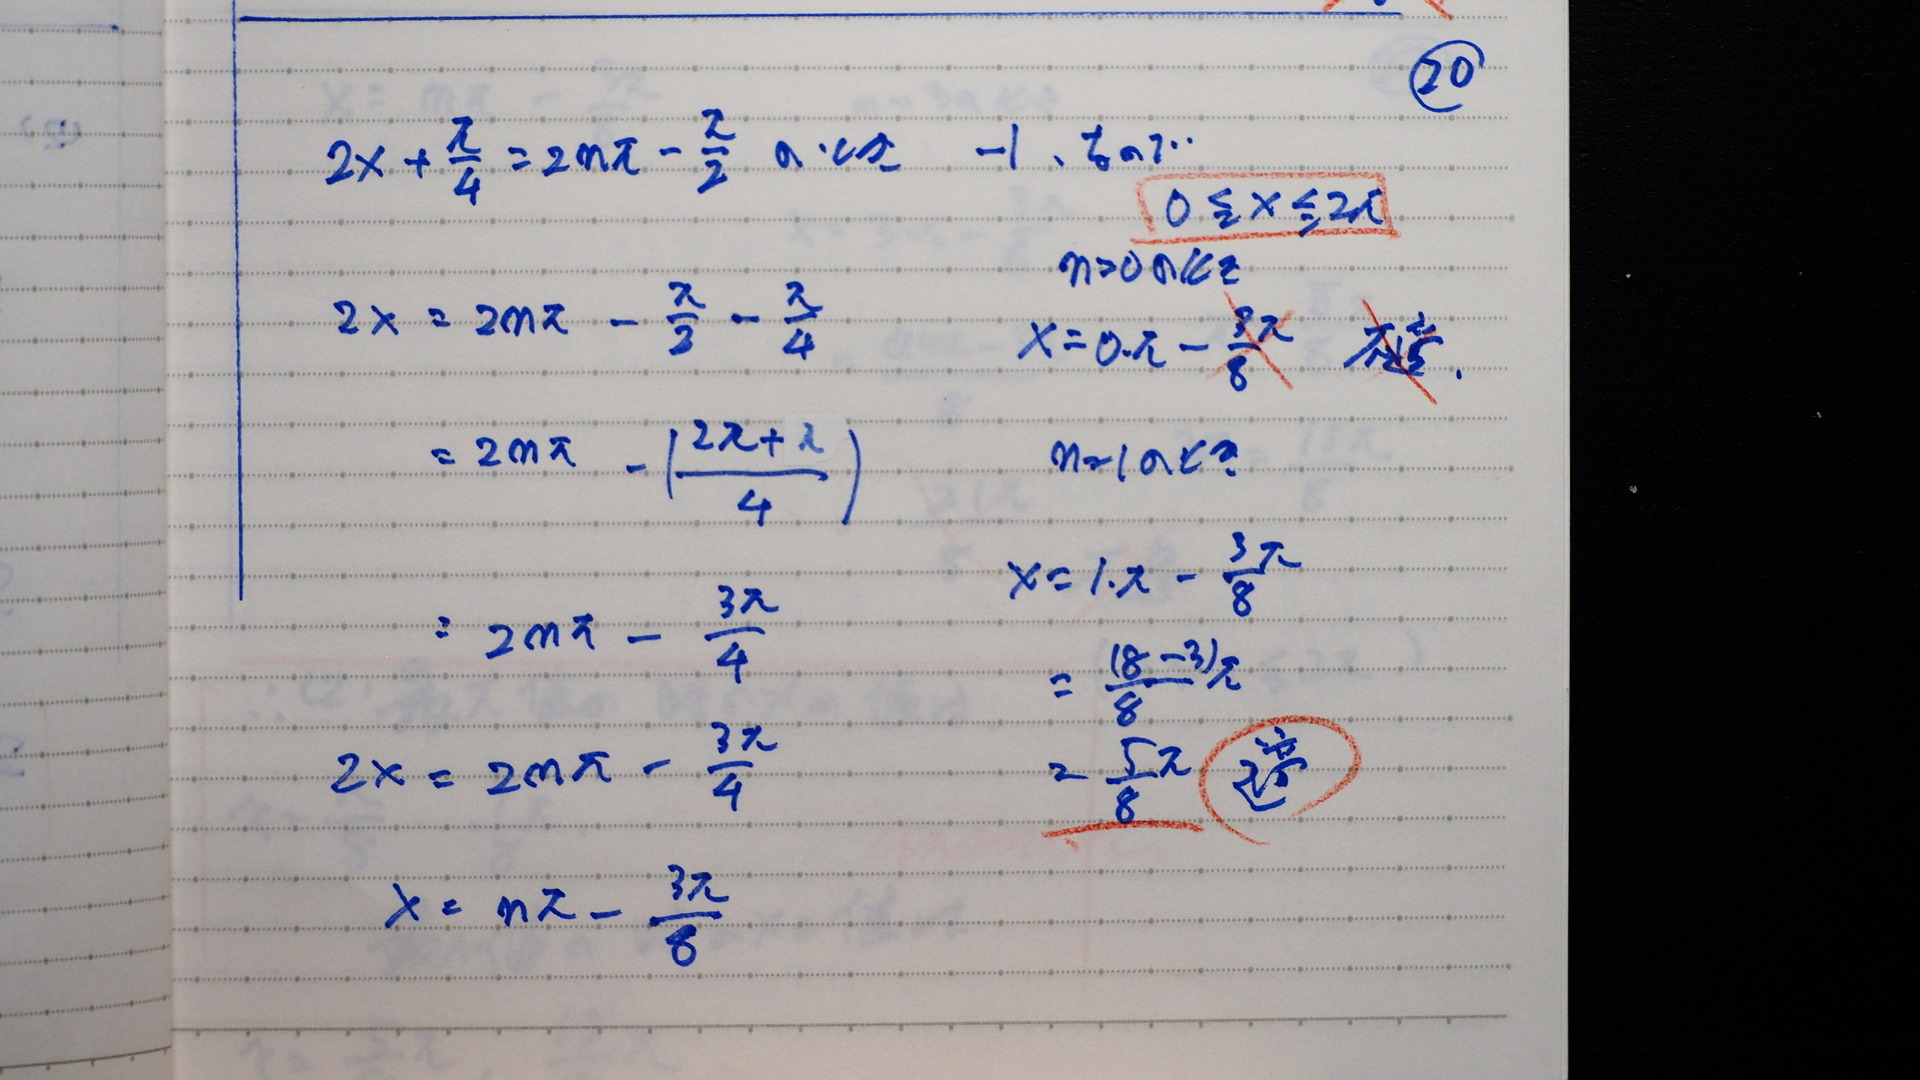 ⑳
2x + π/4 = 2nπ - π/2 のとき -1、なので
2x = 2nπ - π/2 - π/4
= 2nπ - (2π+π/4)
= 2nπ - 3π/4
2x = 2nπ - 3π/4
x = nπ - 3π/8
0 ≦ x ≦ 2π
n=0のとき
x = 0.π - 3π/8 不適.
n=1のとき
x = 1.π - 3π/8
= (8-3)π/8
= 5π/8 適